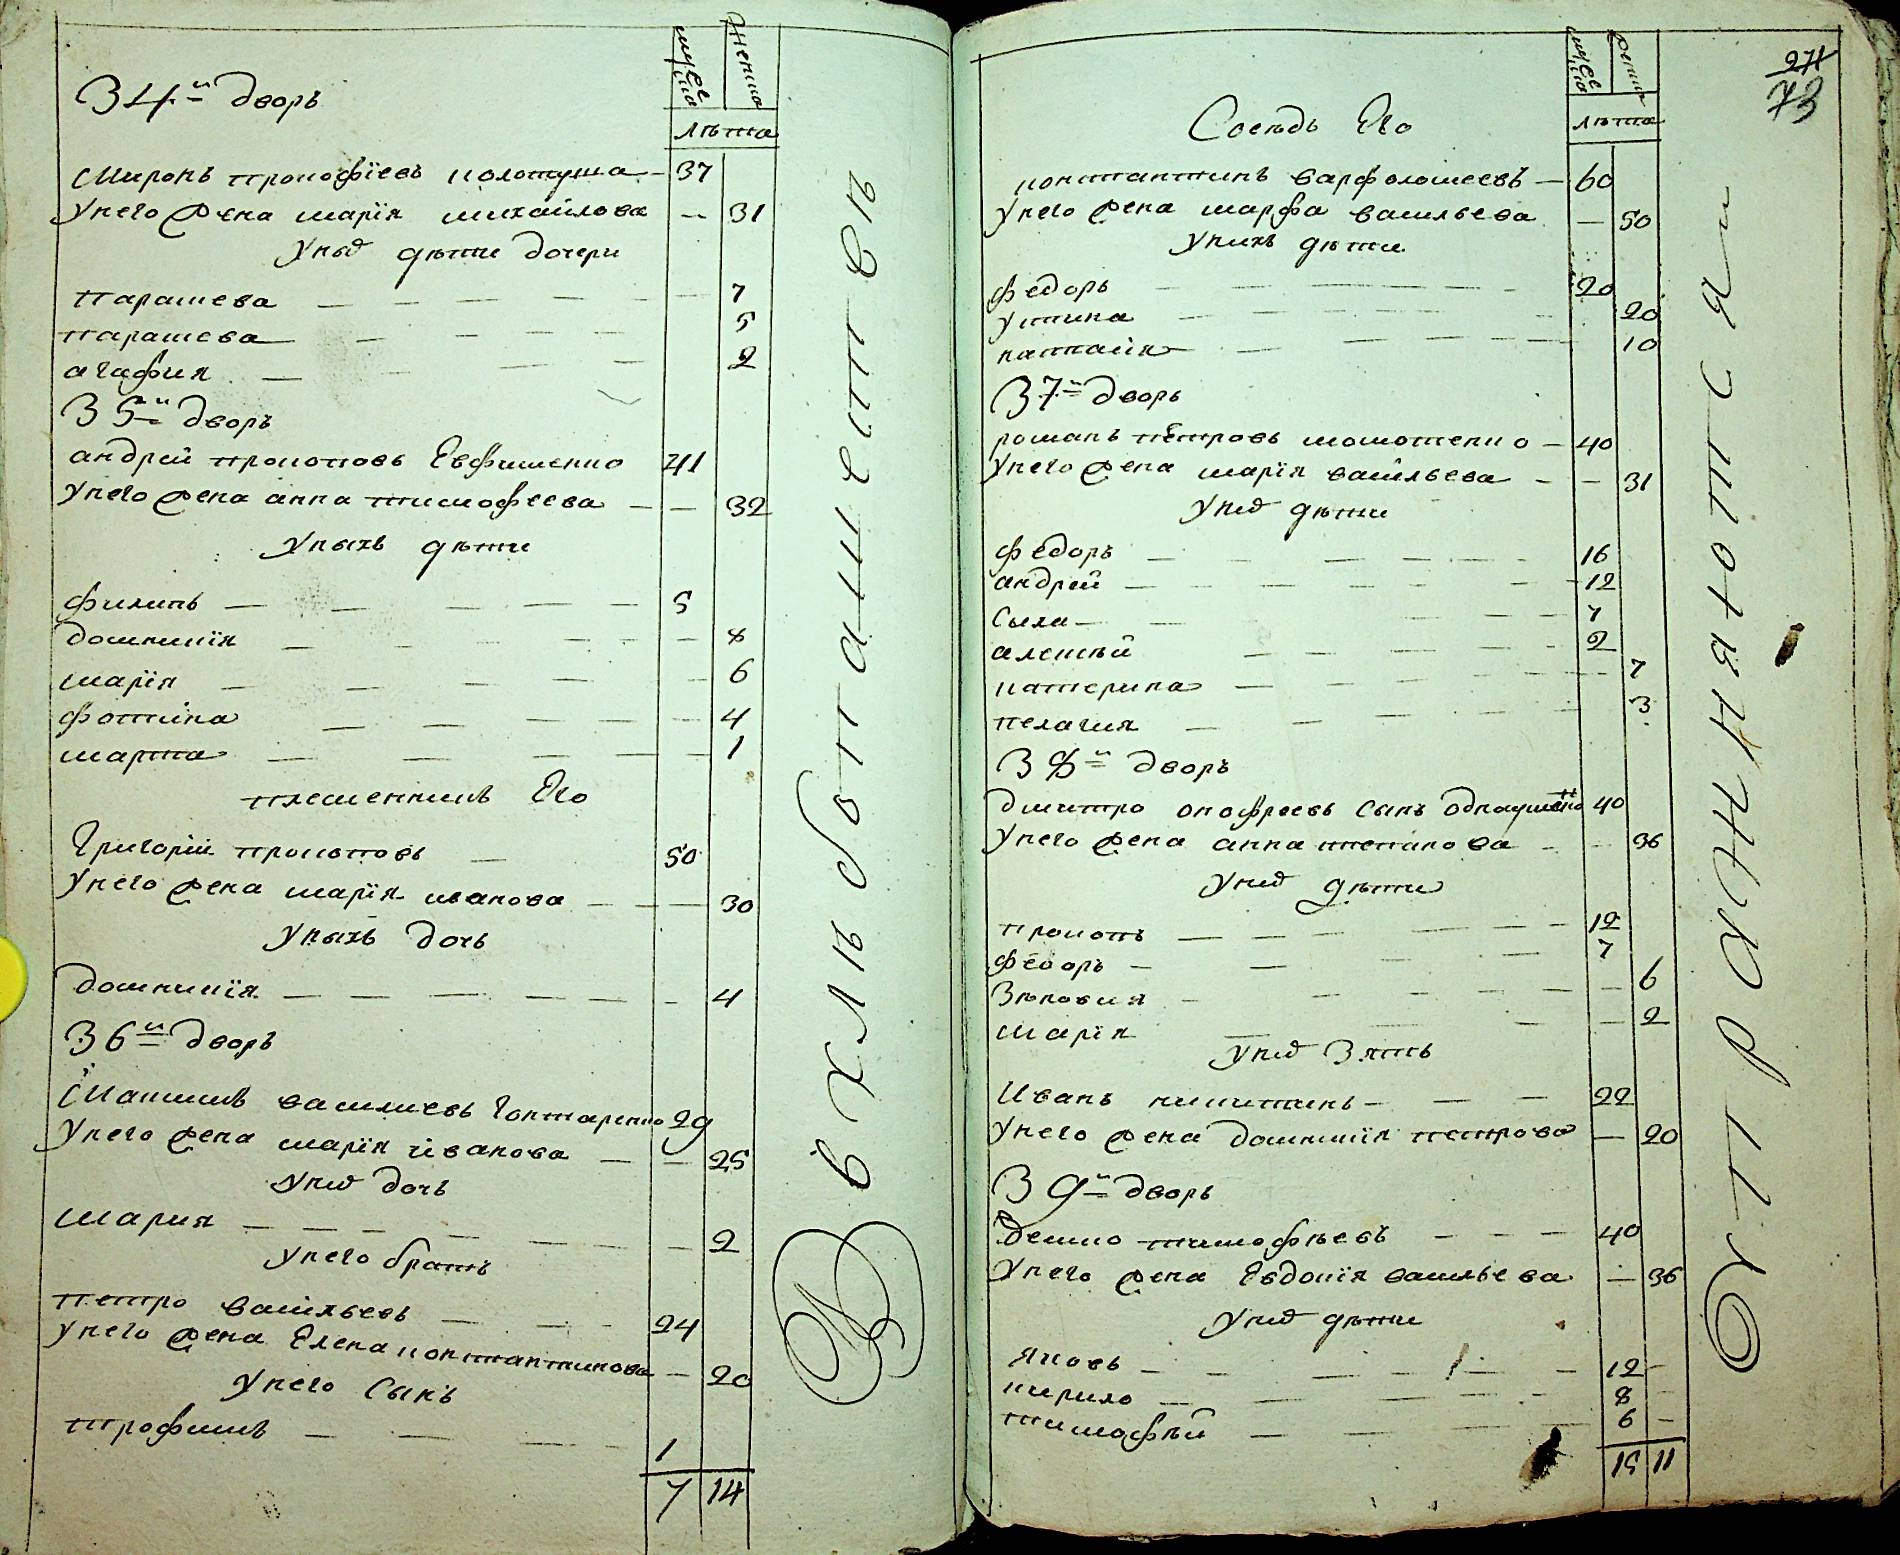 мужеска
женска
лѣта
34.й дворъ
Миронъ прокофїевъ колотуша 37
У него жена марїя михайлова 31
У них дѣти дочери
парашева 7
парашева 5
агафия 2
35й дворъ
андрей прокоповъ Евфименко 41
У него жена анна тимофеева 32
У ныхъ дѣти
филипъ 5
домникїя 8
марїя 6
фотина 4
марта 1
племенникъ Его
Григорїй прокоповъ 50
У него жена марїя иванова 30
У ныхъ дочь
домникїя 4
36й дворъ
Максимъ василиевъ Гонтаренко 29
У него жена марїя иванова 25
У них дочь
Мария 2
У него братъ
петро васильевъ 24
У него жена Елена константинова 20
У него сынъ
трофимъ 1
7 14
В хлѣбопашествѣ
мужеска
женска
лѣта
271
73
Сосѣдъ Его
константинъ варфоломеевъ 60
У него жена марфа васильева 50
У нихъ дѣти
федоръ 20
устина 20
наталия 10
37й дворъ
романъ петровъ момотенко 40
У него жена марїя васильева 31
У них дѣти
федоръ 16
андрей 12
Сыла 7
алексѣй 2
катерина 7
пелагия 3
38й дворъ
дмитро онофреевъ сынъ 40
У него жена анна степанова 36
У них дѣти
прокопъ 12
федоръ 7
Зѣновия 6
марїя 2
У них Зять
Иванъ никитинъ 22
У него жена домникїя петрова 20
39й дворъ
Демко тимофѣевъ 40
У него жена Евдокїя васильева 36
У них дѣти
яковъ 12
кирило 8
тимофѣй 6
15 11
Упражняются